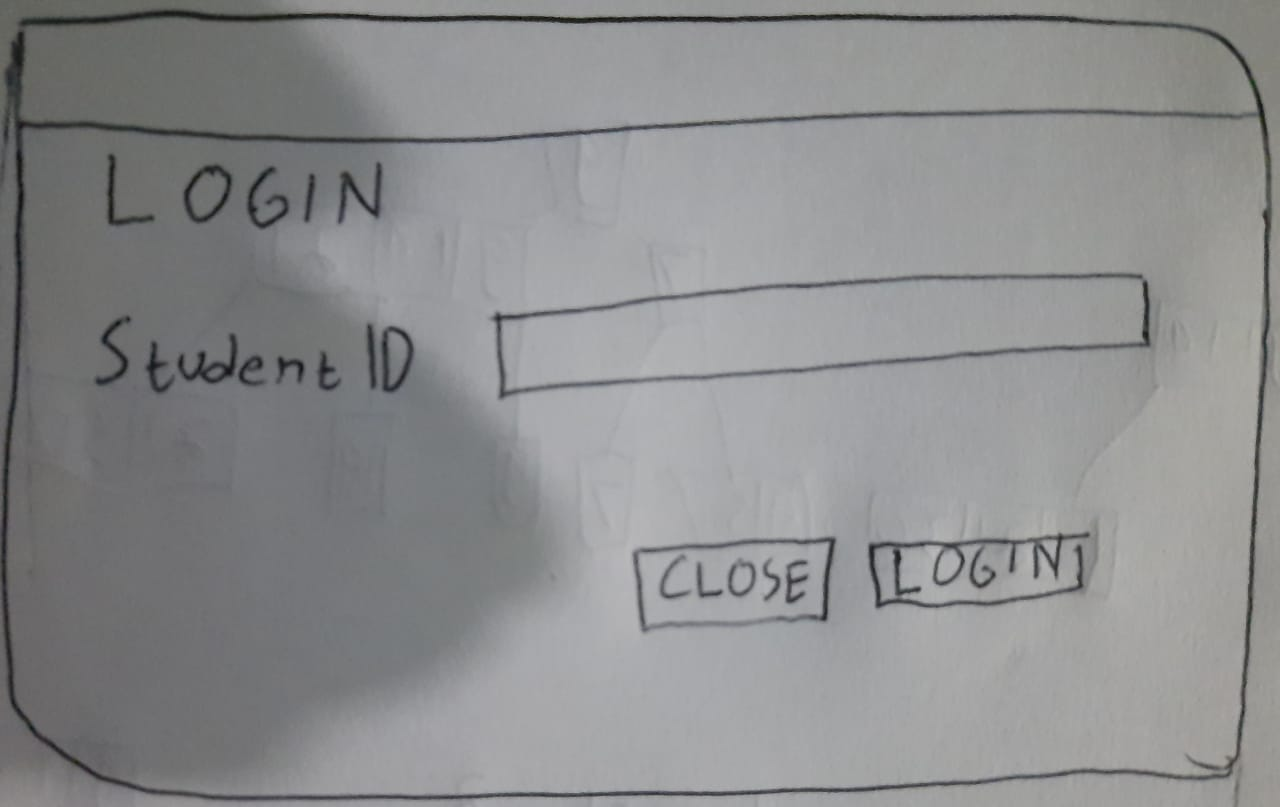 LOGIN
Student ID
CLOSE LOGIN